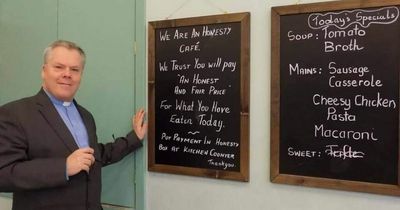 We Are An Honesty
Café.
We Trust You will pay
"An Honest
And Fair Price"
For What You Have
Eaten Today.
Put Payment In Honesty
Box At Kitchen Counter
Thankyou.
Today's Specials
Soup: Tomato
Broth
Mains: Sausage
Casserole
Cheesy Chicken
Pasta
Macaroni
Sweet: